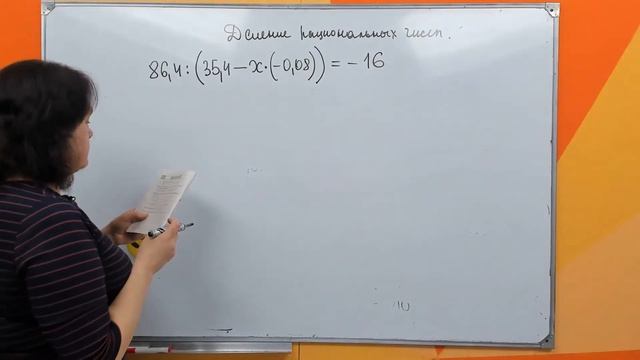 Деление рациональных чисел.
86,4:(35,4-x·(-0,08))=-16